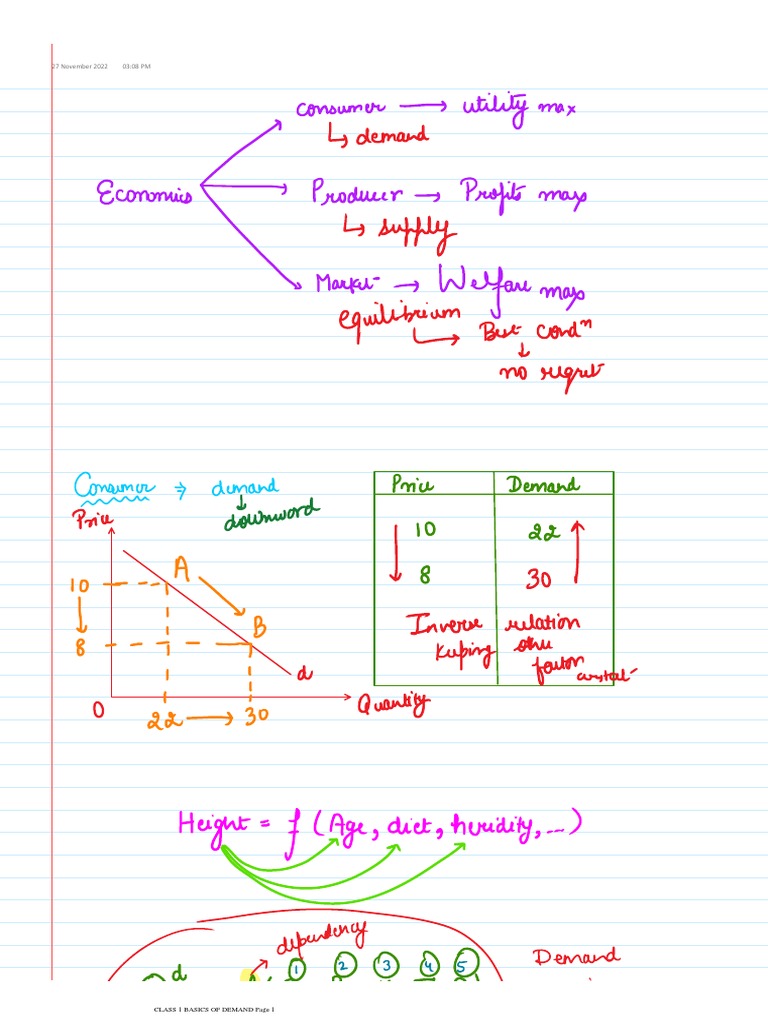 27 November 2022 03:08 PM
consumer → utility max
↳ demand
Economics
Producer → Profits max
↳ supply
Market → Welfare max
equilibrium
↳ Best condⁿ
↓
no regret
Consumer ⇒ demand
↓
downword
Price Demand
10 22
8 30
Inverse relation
keeping other
factor constant
Price
10
8
A
B
d
0
22 → 30
Quantity
Height = f (Age, diet, heridity, ...)
dependency
d 1 2 3 4 5
Demand
CLASS 1 BASICS OF DEMAND Page 1